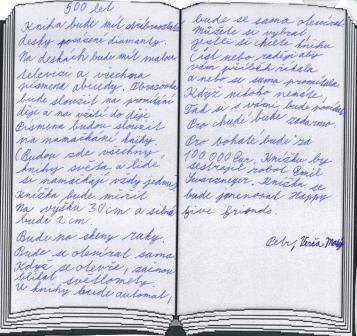 500 let
Kniha bude mít stříbrozlaté
desky posázení diamanty.
Na deskách bude mít malou
televizi a všechna
písmena abecedy. Obrazovka
bude sloužit na promítání
děje a na vžití do děje.
Písmena budou sloužit
na namačkání knihy.
Budou zde všechny
knihy světa a lidé
si namačkají vždy jednu.
Knížka bude měřit
Na výšku 30 cm a silná
bude 2 cm.
Bude na skeny ruky.
Bude se otevírat sama
Když se otevře, začnou
blikat světlomety.
U knihy bude automat,
bude se sama otevírat
Můžete si vybrat,
jestli si chcete knihu
číst nebo raději aby
vám příběh říkala
a nebo se sama promítala.
Když nikoho nemáte
Tak si s vámi bude povídat.
Pro chudé bude zadarmo
Pro bohaté bude za
100 000 Eur. Knížku by
sestrojil robot Emil
Svarzneger. Knížka se
bude jmenovat Happy
five friends.
Petr, Věra